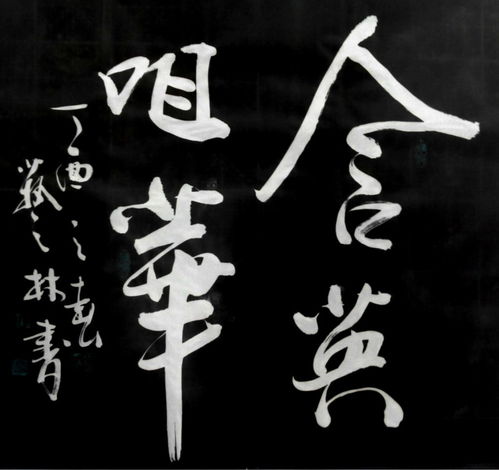 含英
咀華
丁酉之春
之林書